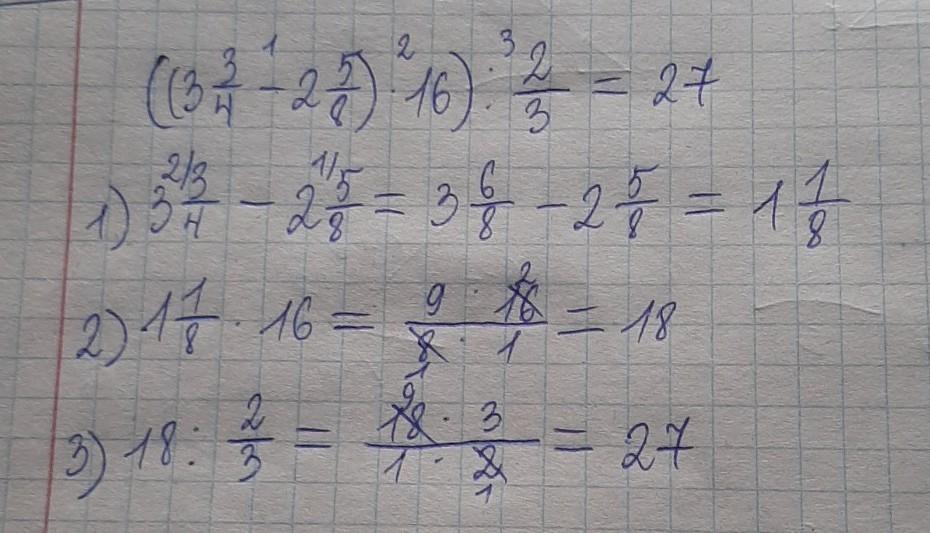 ((3 3/4 - 2 5/8) · 16) : 2/3 = 27
1) 3 3/4 - 2 5/8 = 3 6/8 - 2 5/8 = 1 1/8
2) 1 1/8 · 16 = 9 · 16/8 · 1 = 18
3) 18 : 2/3 = 18 · 3/1 · 2 = 27